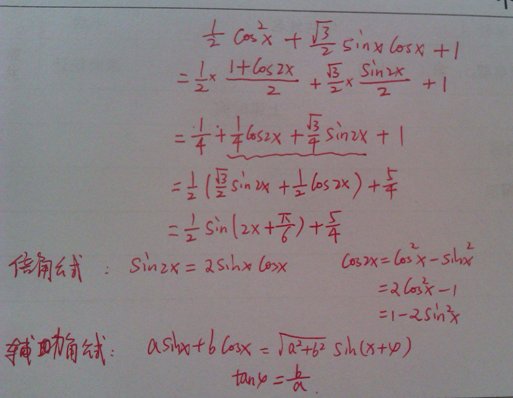 1/2 cos²x + √3/2 sinx cosx + 1
= 1/2 × (1+cos2x)/2 + √3/2 × sin2x/2 + 1
= 1/4 + 1/4 cos2x + √3/4 sin2x + 1
= 1/2 (√3/2 sin2x + 1/2 cos2x) + 5/4
= 1/2 sin(2x + π/6) + 5/4
倍角公式: sin2x = 2sinx cosx cos2x = cos²x - sinx²
= 2cos²x - 1
= 1 - 2sin²x
辅助角公式: asinx + bcosx = √(a²+b²) sin(x+φ)
tanφ = b/a.